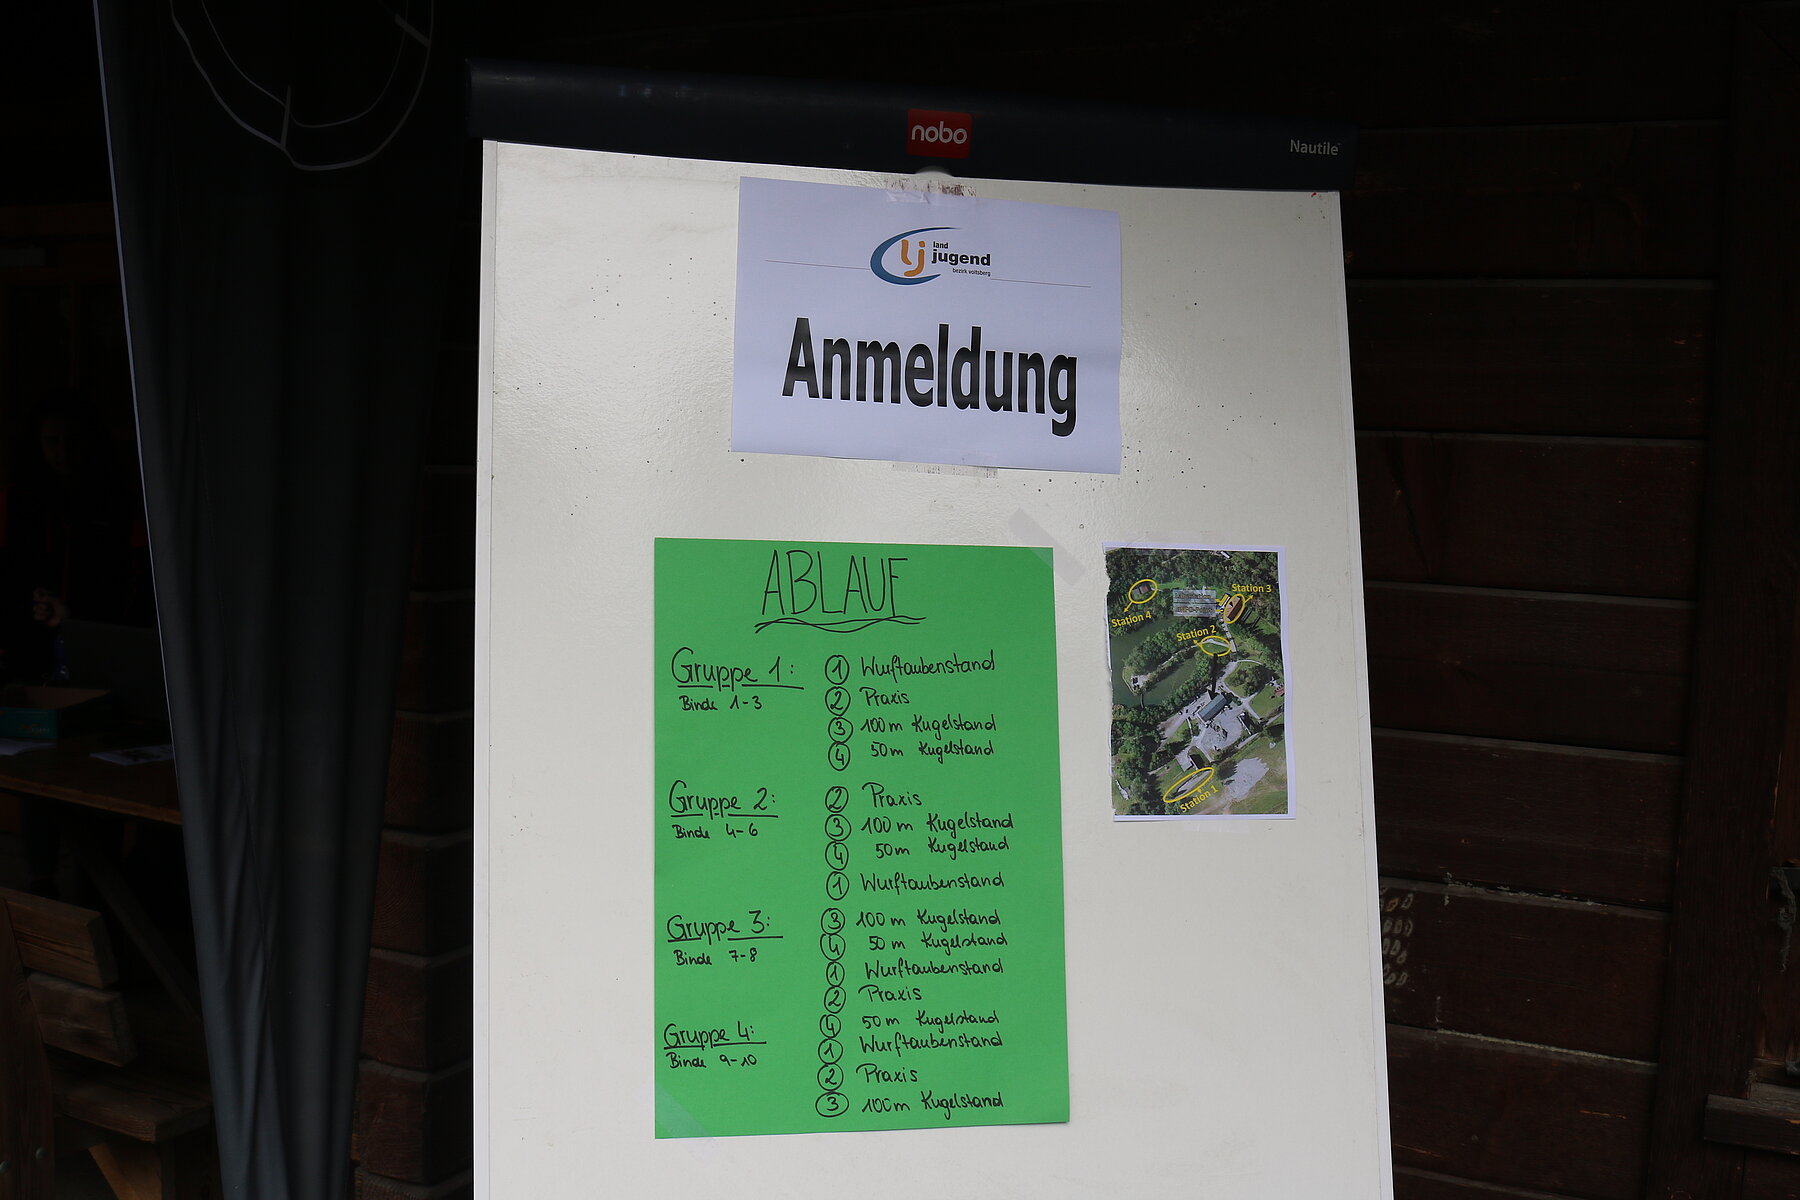 nobo
Nautile
lj
land
jugend
bezirk voitsberg
Anmeldung
ABLAUF
Gruppe 1:
Binde 1-3
1 Wurftaubenstand
2 Praxis
3 100 m Kugelstand
4 50 m Kugelstand
Gruppe 2:
Binde 4-6
2 Praxis
3 100 m Kugelstand
4 50 m Kugelstand
1 Wurftaubenstand
Gruppe 3:
Binde 7-8
3 100 m Kugelstand
4 50 m Kugelstand
1 Wurftaubenstand
2 Praxis
Gruppe 4:
Binde 9-10
4 50 m Kugelstand
1 Wurftaubenstand
2 Praxis
3 100 m Kugelstand
Station 3
Station 4
Station 2
Station 1